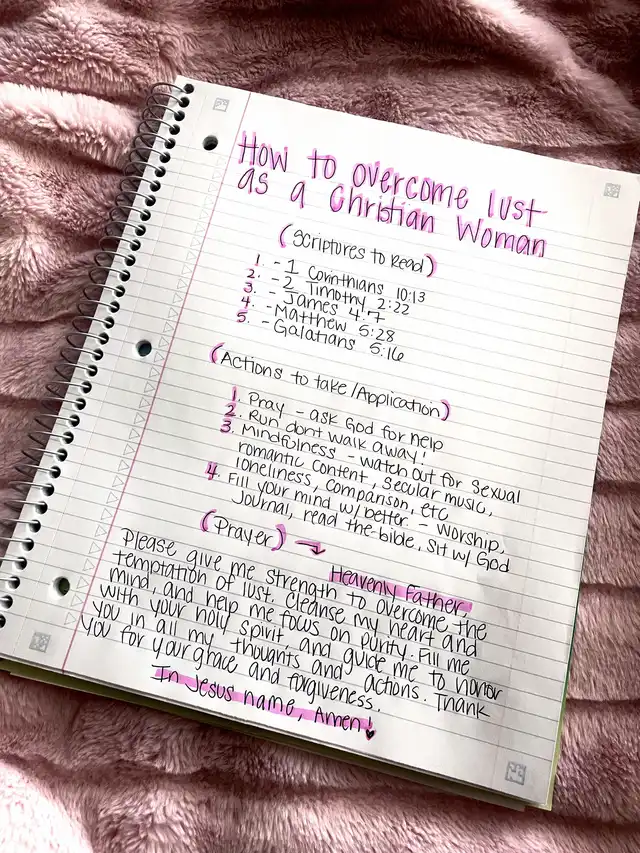 How to overcome lust
as a Christian Woman
(Scriptures to Read)
1. - 1 Corinthians 10:13
2. - 2 Timothy 2:22
3. - James 4:7
4. - Matthew 5:28
5. - Galatians 5:16
(Actions to take/Application)
1. Pray - ask God for help
2. Run dont walk away!
3. Mindfulness - watch out for sexual
romantic content, secular music,
loneliness, comparison, etc
4. Fill your mind w/ better - Worship,
Journal, read the bible, sit w/ God
(Prayer) → Heavenly Father
Please give me strength to overcome the
temptation of lust. Cleanse my heart and
mind, and help me focus on purity. Fill me
with your holy spirit, and guide me to honor
you in all my thoughts and actions. Thank
you for your grace and forgiveness.
In Jesus name, Amen!